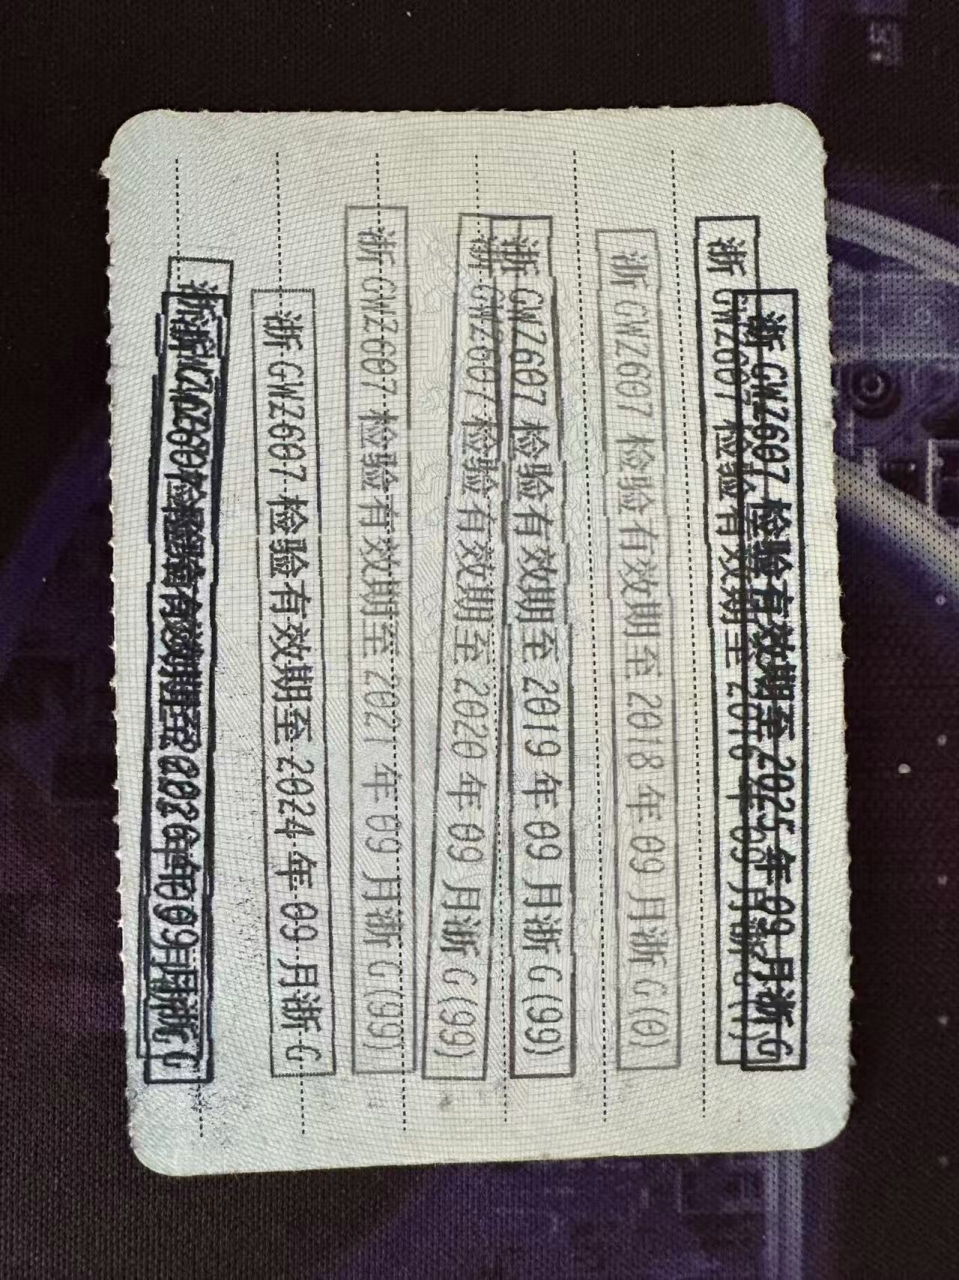 浙 GWZ607 检验有效期至 2025 年 09 月浙 G
浙 GWZ607 检验有效期至 年 09 月浙 G
浙 GWZ607 检验有效期至 2018 年 09 月浙 G (0)
浙 GWZ607 检验有效期至 2019 年 09 月浙 G (99)
浙 GWZ607 检验有效期至 2020 年 09 月浙 G (99)
浙 GWZ607 检验有效期至 2021 年 09 月浙 G (99)
浙 GWZ607 检验有效期至 2024 年 09 月浙 G